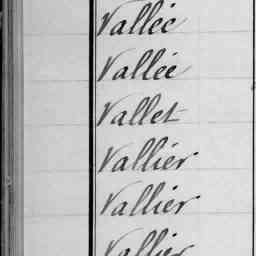 Vallée
Vallée
Vallet
Vallier
Vallier
Vallier